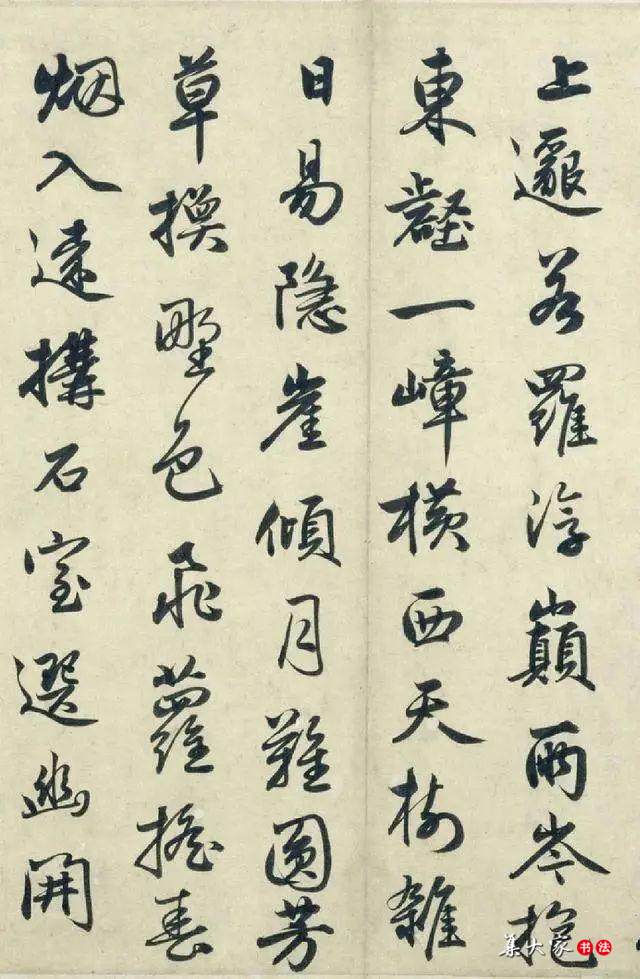 上邈若羅浮巔兩岑抱
東壑一嶂橫西天樹雜
日易隱崖傾月難圓芳
草換野色飛蘿搖春
烟入遠構石室選幽開
集大家 书法